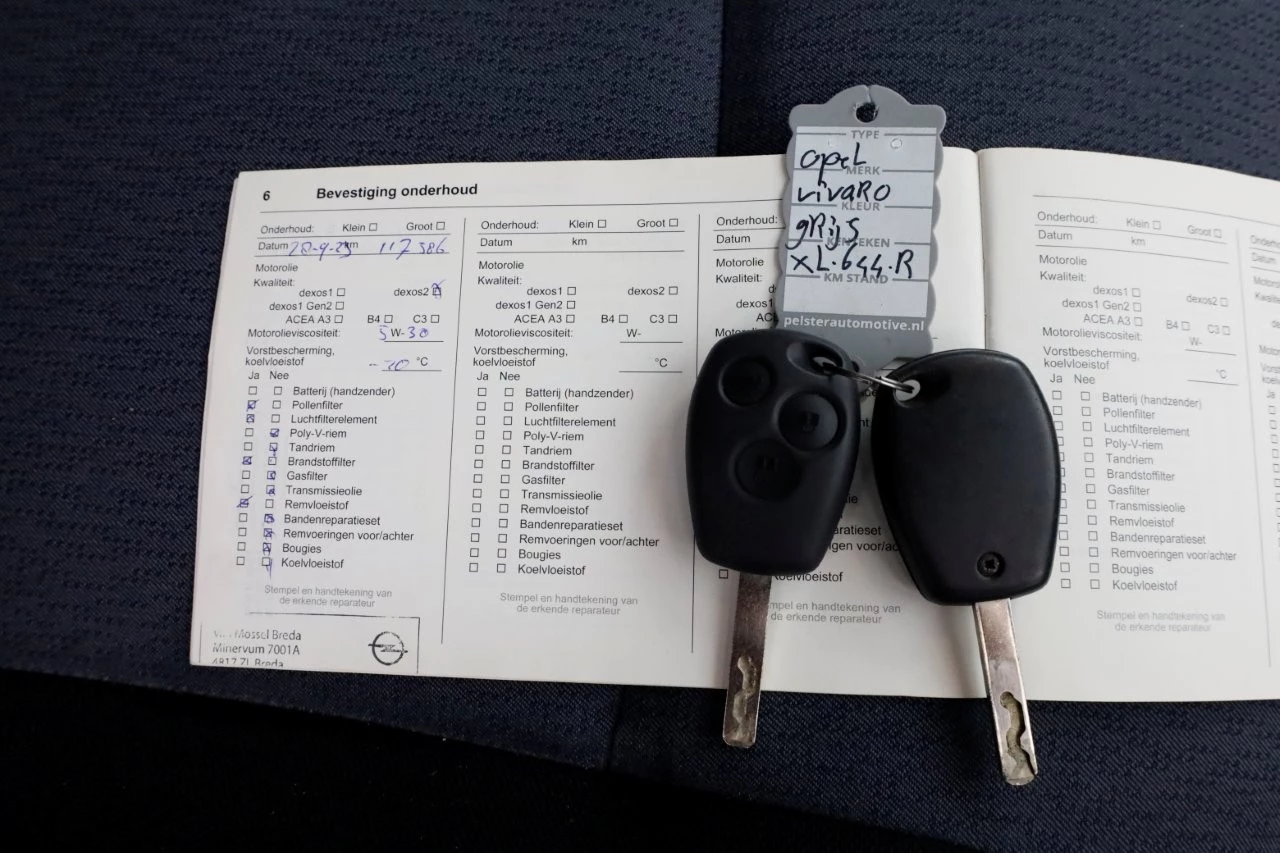 6 Bevestiging onderhoud
Onderhoud: Klein ☐ Groot ☐
Datum 28-9-23 km 117 586
Motorolie
Kwaliteit:
dexos1 ☐ dexos2 ☒
dexos1 Gen2 ☐
ACEA A3 ☐ B4 ☐ C3 ☐
Motorolieviscositeit: 5 W-30
Vorstbescherming,
koelvloeistof -30 °C
Ja Nee
Batterij (handzender)
Pollenfilter
Luchtfilterelement
Poly-V-riem
Tandriem
Brandstoffilter
Gasfilter
Transmissieolie
Remvloeistof
Bandenreparatieset
Remvoeringen voor/achter
Bougies
Koelvloeistof
Stempel en handtekening van
de erkende reparateur
Mossel Breda
Minervum 7001A
4817 ZL Breda
Onderhoud: Klein ☐ Groot ☐
Datum km
Motorolie
Kwaliteit:
dexos1 ☐ dexos2 ☐
dexos1 Gen2 ☐
ACEA A3 ☐ B4 ☐ C3 ☐
Motorolieviscositeit: W-
Vorstbescherming,
koelvloeistof °C
Ja Nee
Batterij (handzender)
Pollenfilter
Luchtfilterelement
Poly-V-riem
Tandriem
Brandstoffilter
Gasfilter
Transmissieolie
Remvloeistof
Bandenreparatieset
Remvoeringen voor/achter
Bougies
Koelvloeistof
Stempel en handtekening van
de erkende reparateur
Onderhoud:
Datum
Motorolie
Kwaliteit:
TYPE
opel
MERK
vivaRO
KLEUR
gRijs
KENTEKEN
XL.644.R
KM STAND
pelsterautomotive.nl
de erkende reparateur
Onderhoud: Klein ☐ Groot ☐
Datum km
Motorolie
Kwaliteit:
dexos1 ☐ dexos2 ☐
dexos1 Gen2 ☐
ACEA A3 ☐ B4 ☐ C3 ☐
Motorolieviscositeit: W-
Vorstbescherming,
koelvloeistof °C
Ja Nee
Batterij (handzender)
Pollenfilter
Luchtfilterelement
Poly-V-riem
Tandriem
Brandstoffilter
Gasfilter
Transmissieolie
Remvloeistof
Bandenreparatieset
Remvoeringen voor/achter
Bougies
Koelvloeistof
Stempel en handtekening van
de erkende reparateur